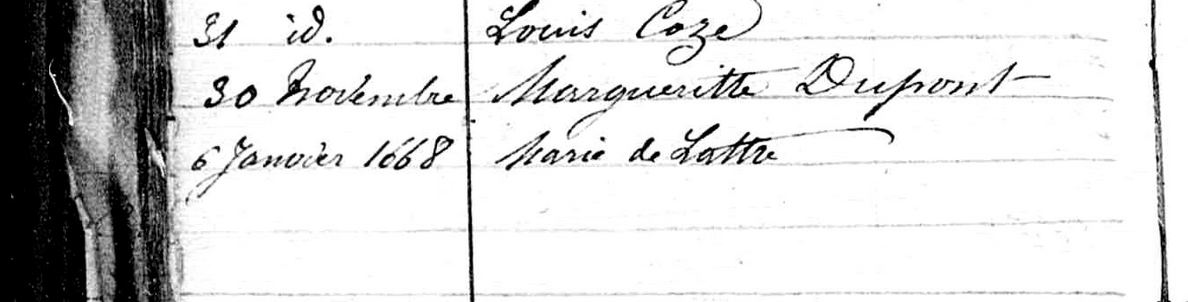 31 id. Louis Coze
30 Novembre Margueritte Dupont
6 Janvier 1668 Marie de Lattre